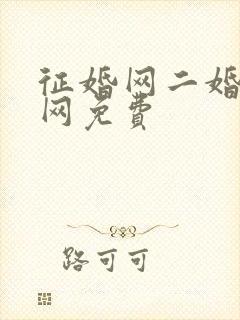 征婚网二婚
网免费
路可可